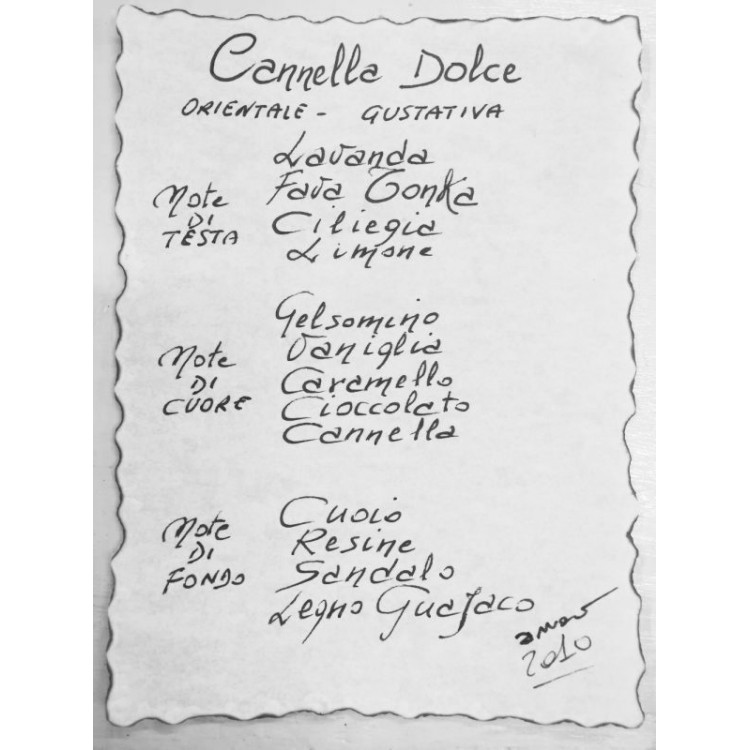 Cannella Dolce
ORIENTALE - GUSTATIVA
Note
DI
TESTA
Lavanda
Fava Tonka
Ciliegia
Limone
Note
DI
CUORE
Gelsomino
Vaniglia
Caramello
Cioccolato
Cannella
Note
DI
FONDO
Cuoio
Resine
Sandalo
Legno Guajaco
2010